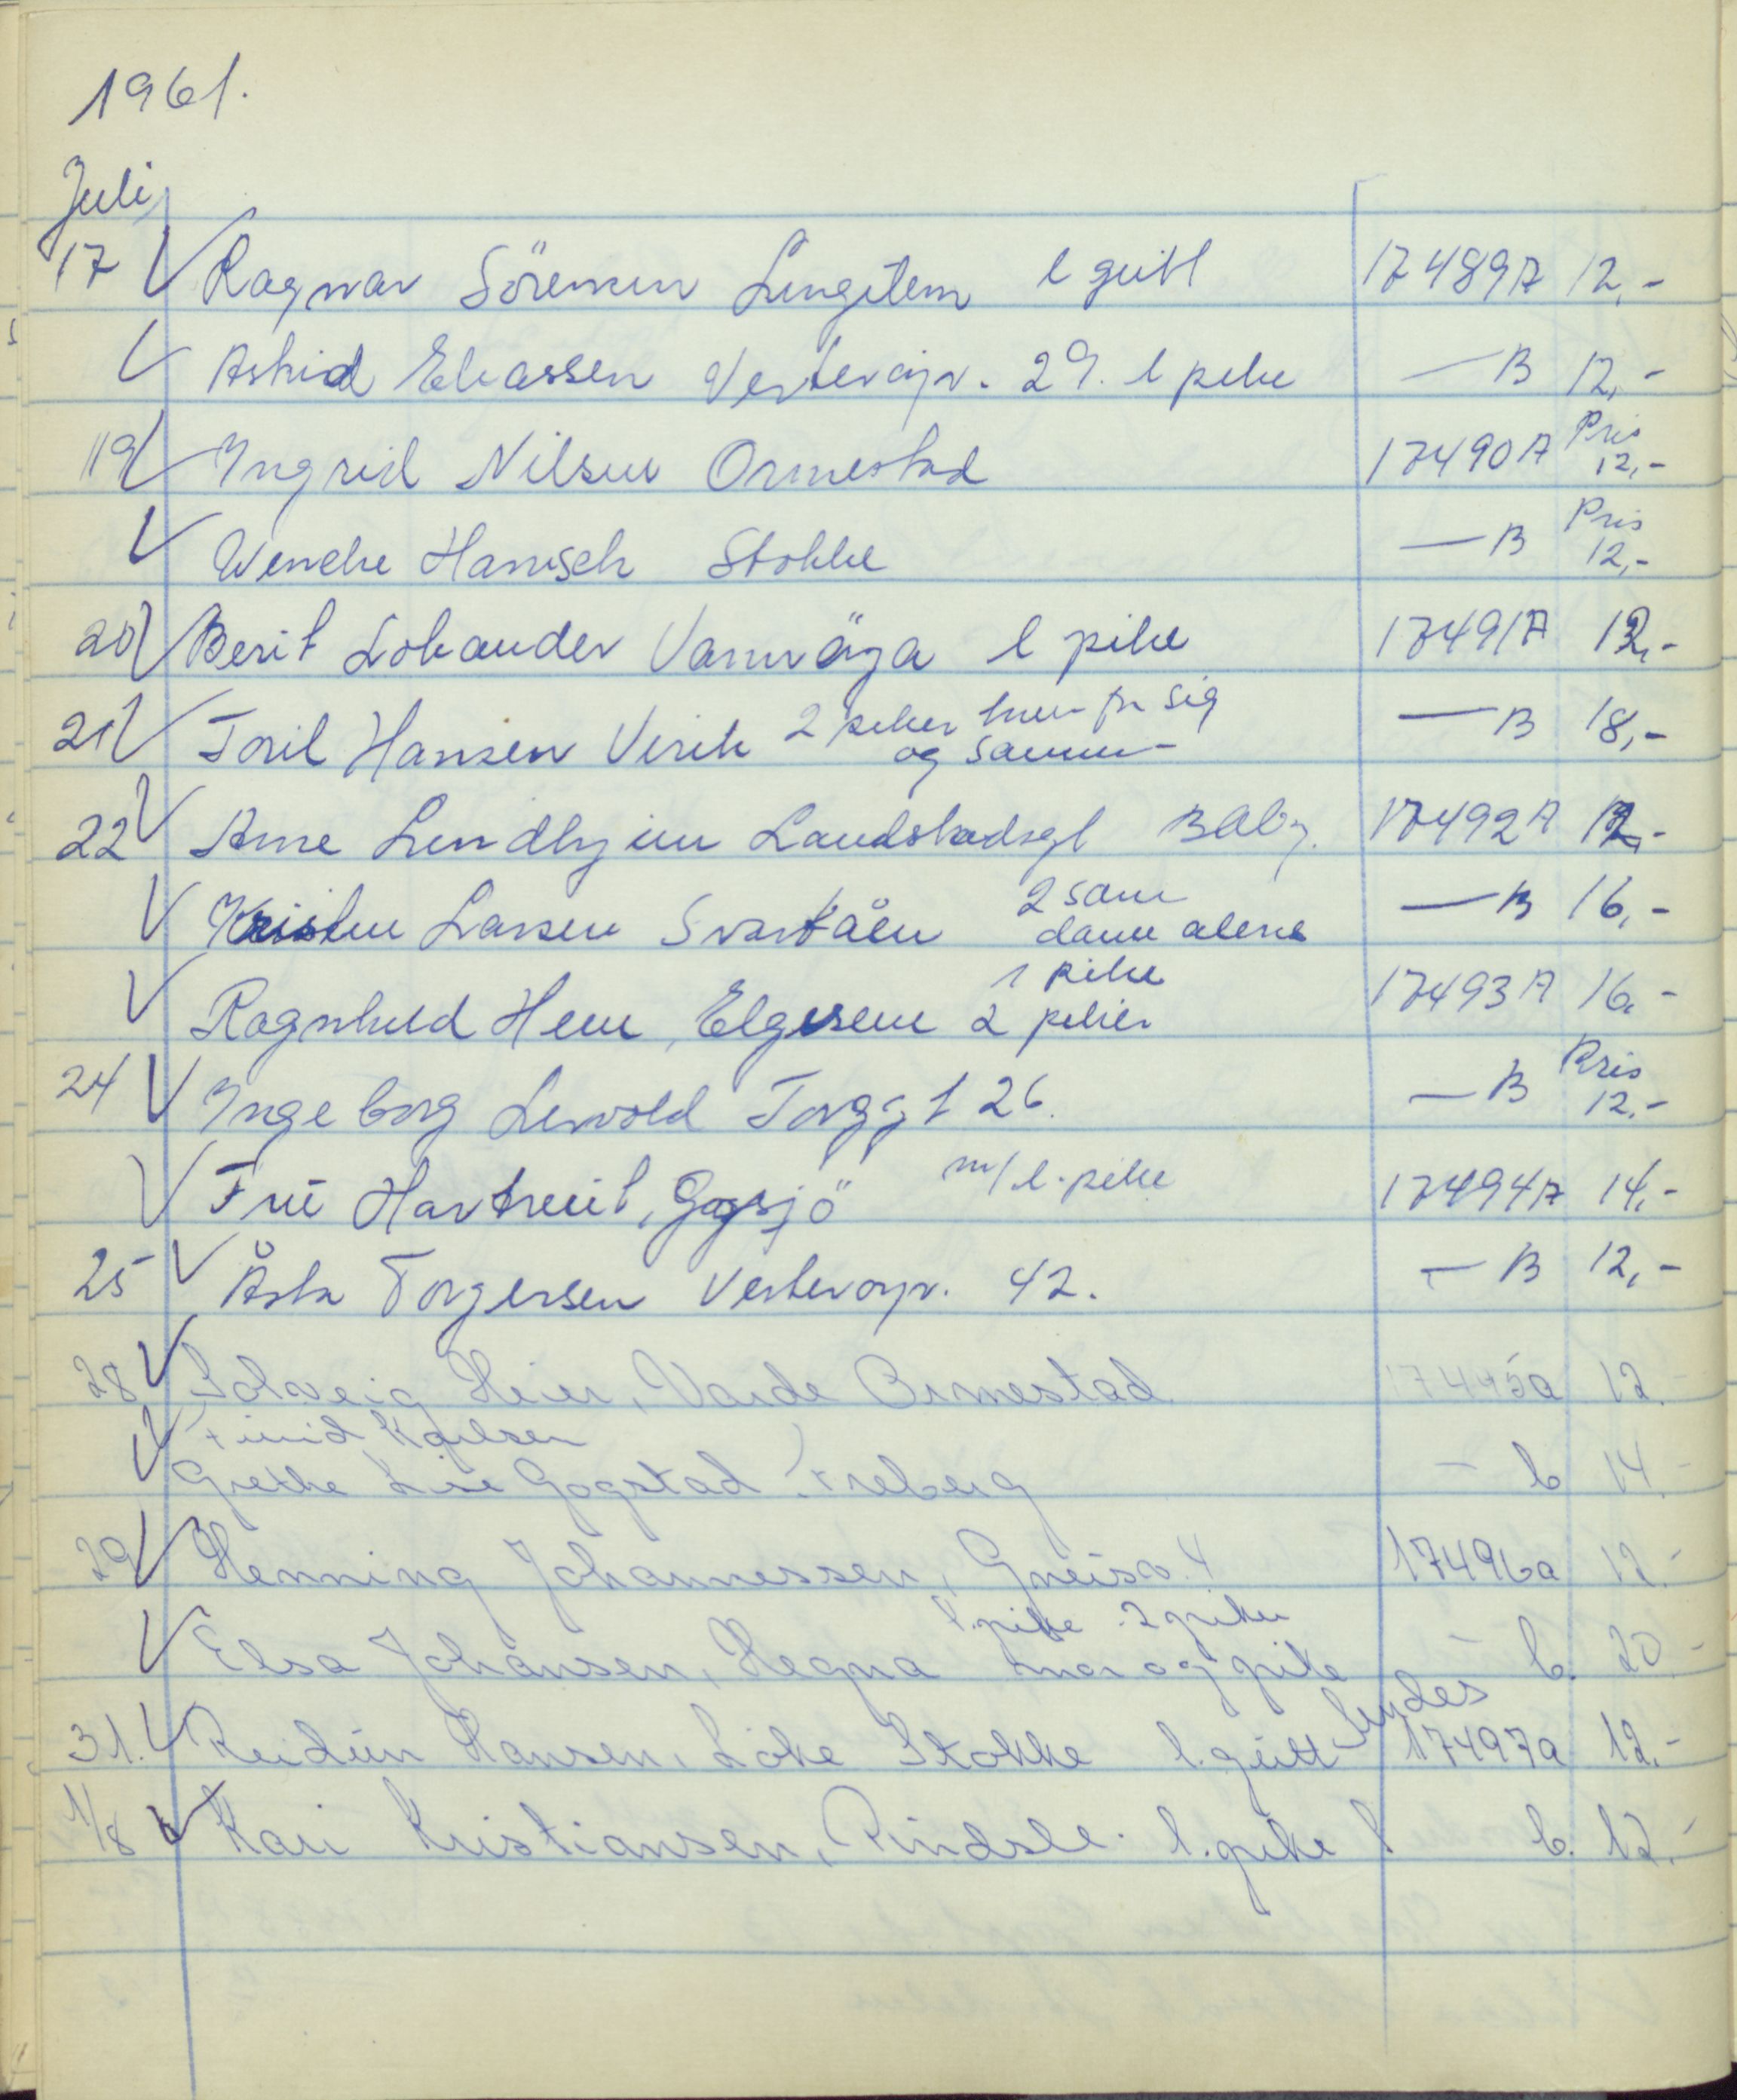 1961.
Juli
17 Ragnar Sörensen Lingelem l gutt 17489A 12,-
Astrid Eliassen Vesterøyv. 29. l pike — B 12,-
19 Ingrid Nilsen Ormestad 17490A Pris 12,-
Wenche Hanisch Stokke — B Pris 12,-
20 Berit Lokander Vannäga l pike 17491A 12,-
21 Toril Hansen Virik 2 piker hver for sig og sammen — B 18,-
22 Arne Lundhjem Landstadsgt Baby. 17492A 12,-
Kristine Larsen Svartåen 2 sam dame alene — B 16,-
1 pike
Ragnhild Hem, Elgesem 2 piker 17493A 16,-
24 Ingeborg Lervold Torggt 26. — B Pris 12,-
Frü Hartveit, Gogsjö m/l. pike 17494A 14,-
25 Åsta Torgersen Vesterøyv. 42. — B 12,-
28 Solveig Heier, Varde Ormestad 17495a 12.-
Karlsen
Grethe Lise Gogstad Freberg — b 14.-
29 Henning Johannessen, Gneisv. 4 17496a 12.-
l. pike 2 piker
Elsa Johansen, Hegna mor og pike — b. 20.-
31. Reidün Hansen, Løke Stokke l. gütt sendes 17497a 12.-
1/8 Kari Kristiansen, Pindsle. l. pike b. 12.-